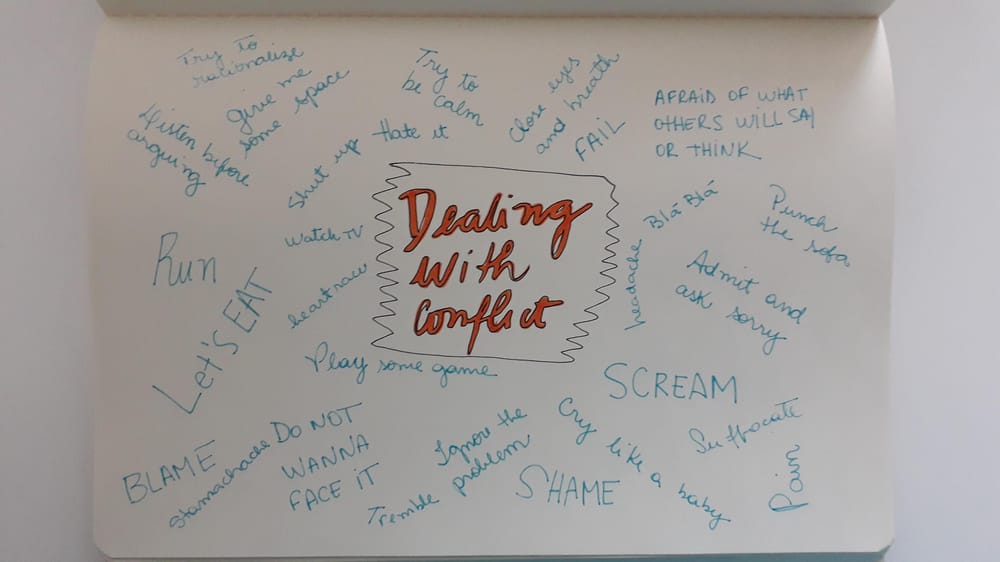 Try to
rationalize
give me
some space
Listen before
arguing
Try to
be calm
Hate it
Close eyes
and breath
FAIL
AFRAID OF WHAT
OTHERS WILL SAY
OR THINK
Shut up
Watch TV
heartraw
Run
Let'S EAT
Dealing
With
Conflict
Blá Blá
headache
Punch
the sofa
Admit and
ask sorry
Play some game
SCREAM
BLAME
stomachache
DO NOT
WANNA
FACE IT
Ignore the
problem
Tremble
SHAME
Cry like a baby
Suffocate
Pain